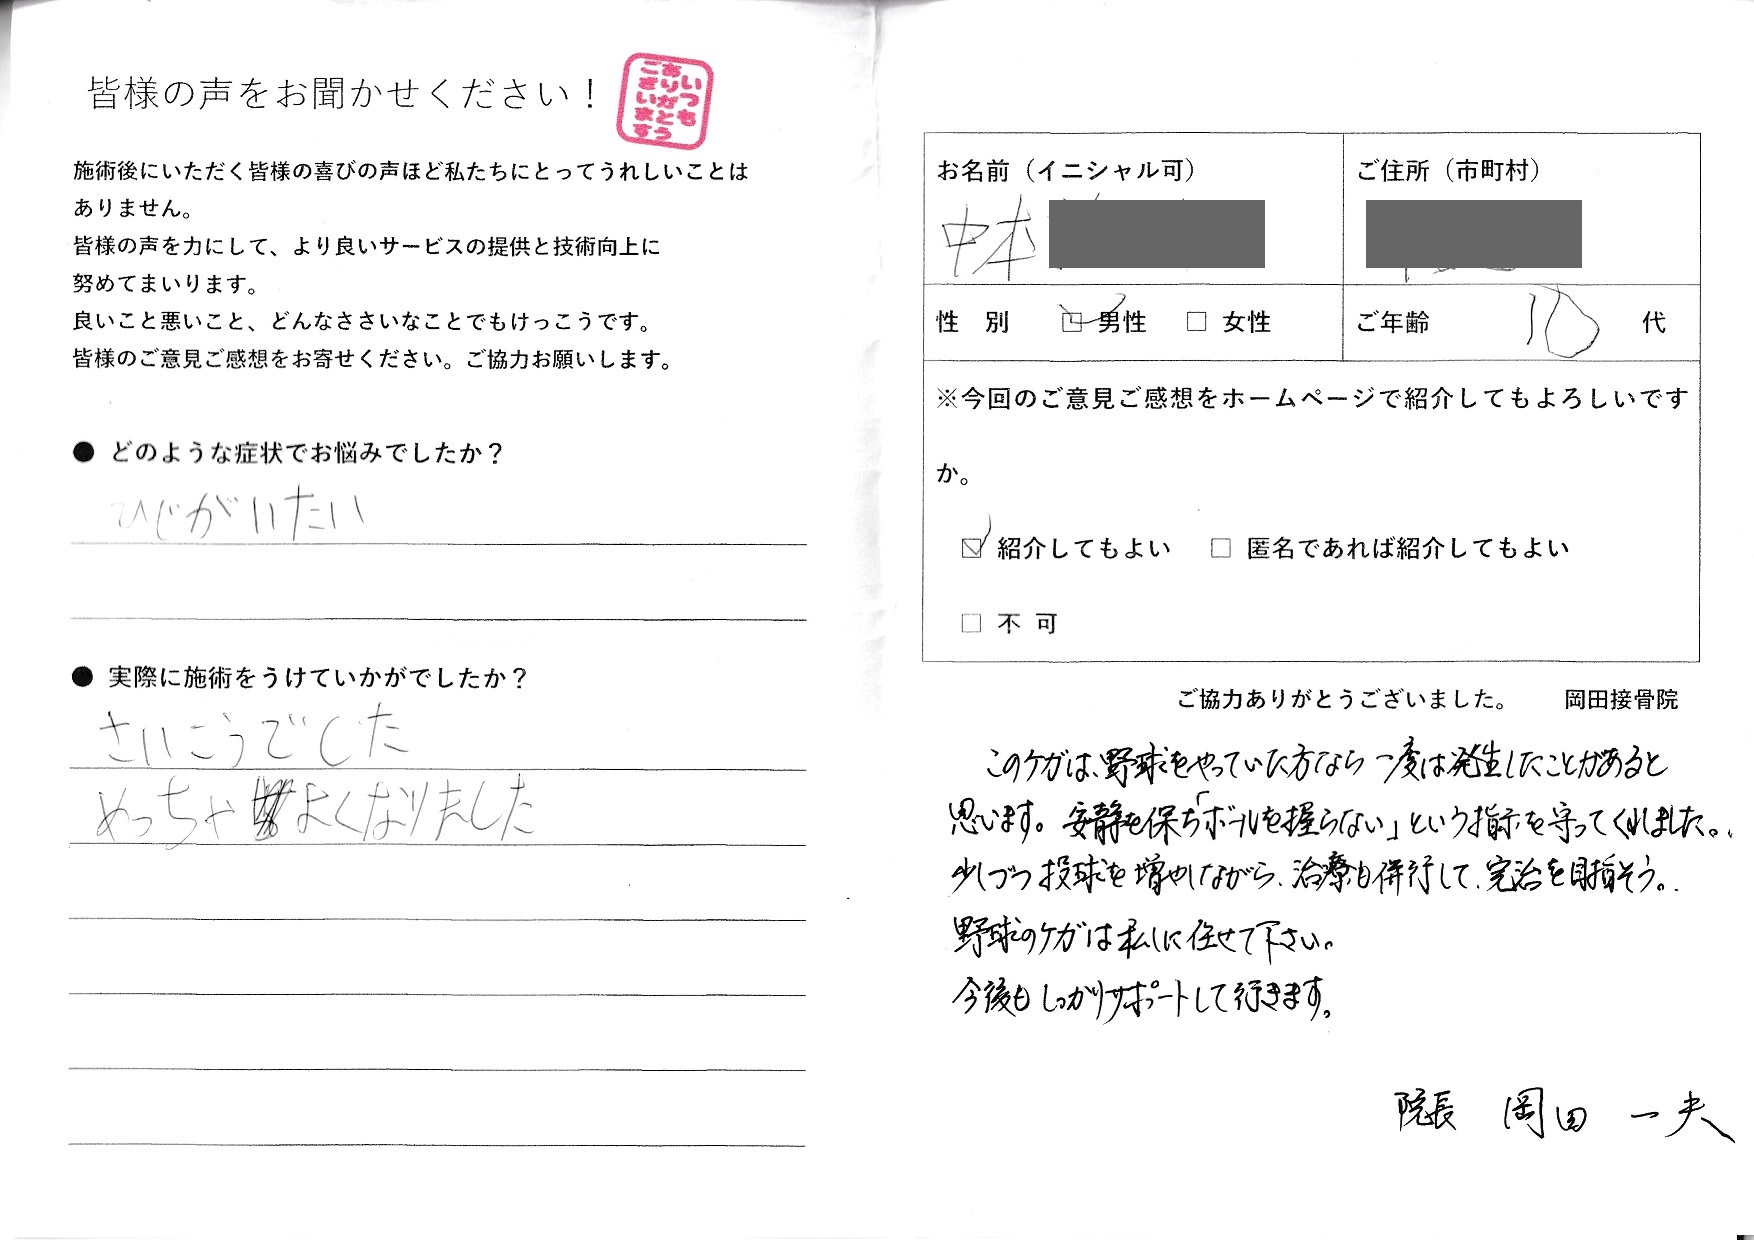 皆様の声をお聞かせください！
いつも
ありがとう
ございます
施術後にいただく皆様の喜びの声ほど私たちにとってうれしいことは
ありません。
皆様の声を力にして、より良いサービスの提供と技術向上に
努めてまいります。
良いこと悪いこと、どんなささいなことでもけっこうです。
皆様のご意見ご感想をお寄せください。ご協力お願いします。
● どのような症状でお悩みでしたか？
ひじがいたい
● 実際に施術をうけていかがでしたか？
さいこうでした
めっちゃよくなりました
お名前（イニシャル可）
中本
ご住所（市町村）
性 別 ☑ 男性 □ 女性
ご年齢 10 代
※今回のご意見ご感想をホームページで紹介してもよろしいです
か。
☑ 紹介してもよい □ 匿名であれば紹介してもよい
□ 不 可
ご協力ありがとうございました。 岡田接骨院
このケガは、野球をやっていた方なら一度は発生したことがあると
思います。安静を保ち「ボールを握らない」という指示を守ってくれました。
少しづつ投球を増やしながら、治療も併行して、完治を目指そう。
野球のケガは私に任せて下さい。
今後もしっかりサポートして行きます。
院長 岡田 一夫